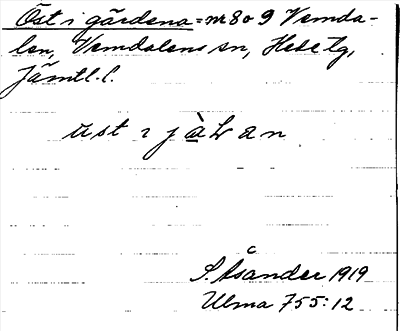 Öst i gärdena = nr 8 o 9 Vemda-
len, Vemdalens sn, Hede tg,
Jämtl. l.
ust ı j à L a n
S. Åsander 1919
Ulma 755:12